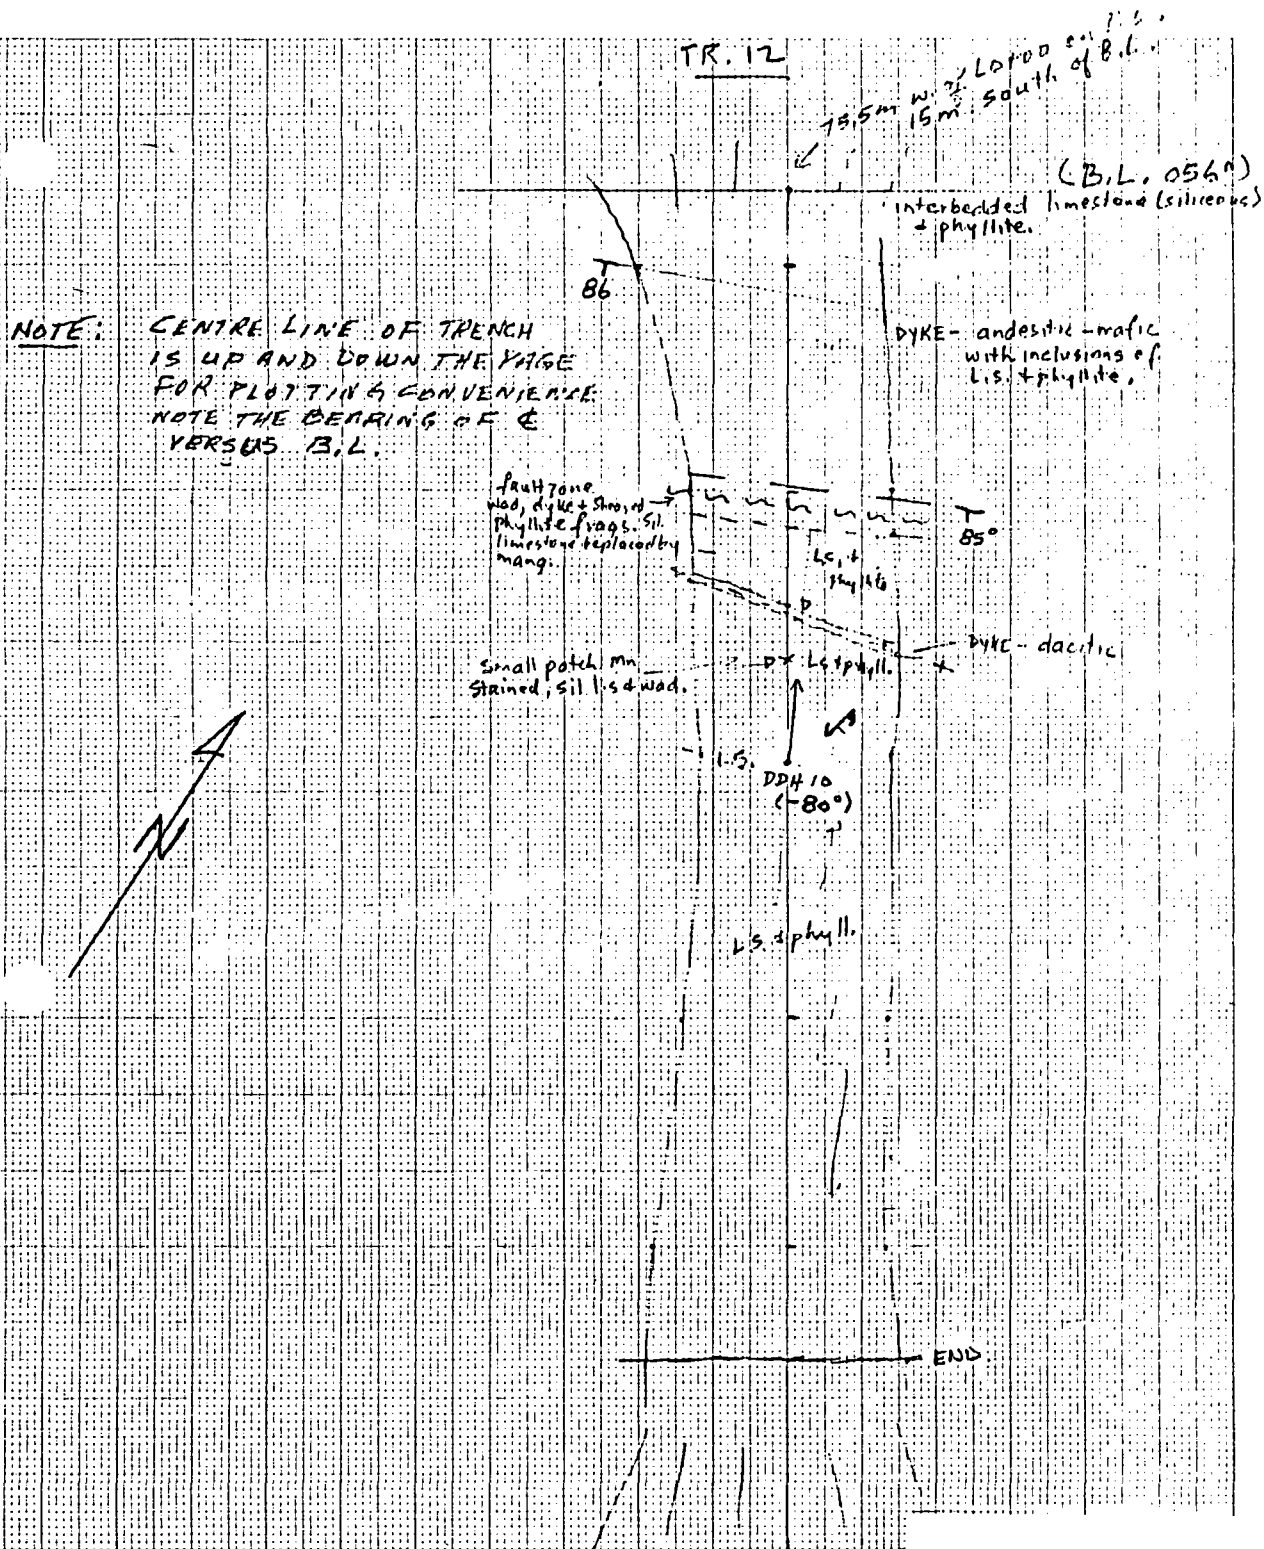 TR. 12
75.5m W. of L0+00
15m South of B.L.
(B.L. 056
interbedded limestone (siliceous)
+ phyllite.
86
NOTE: CENTRE LINE OF TRENCH
IS UP AND DOWN THE PAGE
FOR PLOTTING CONVENIENCE
NOTE THE BEARING OF ℄
VERSUS B.L.
DYKE - andesitic - mafic
with inclusions of
L.S. + phyllite.
fault zone
wad, dyke + sheared
phyllite frags. Sil.
limestone replaced by
mang.
85°
L.S. +
phyllite
D
DYKE - dacitic
Small patch Mn
stained, sil l.s & wad.
D
L.S + phyll.
L.S.
DDH 10
(-80°)
N
L.S. + phyll.
END